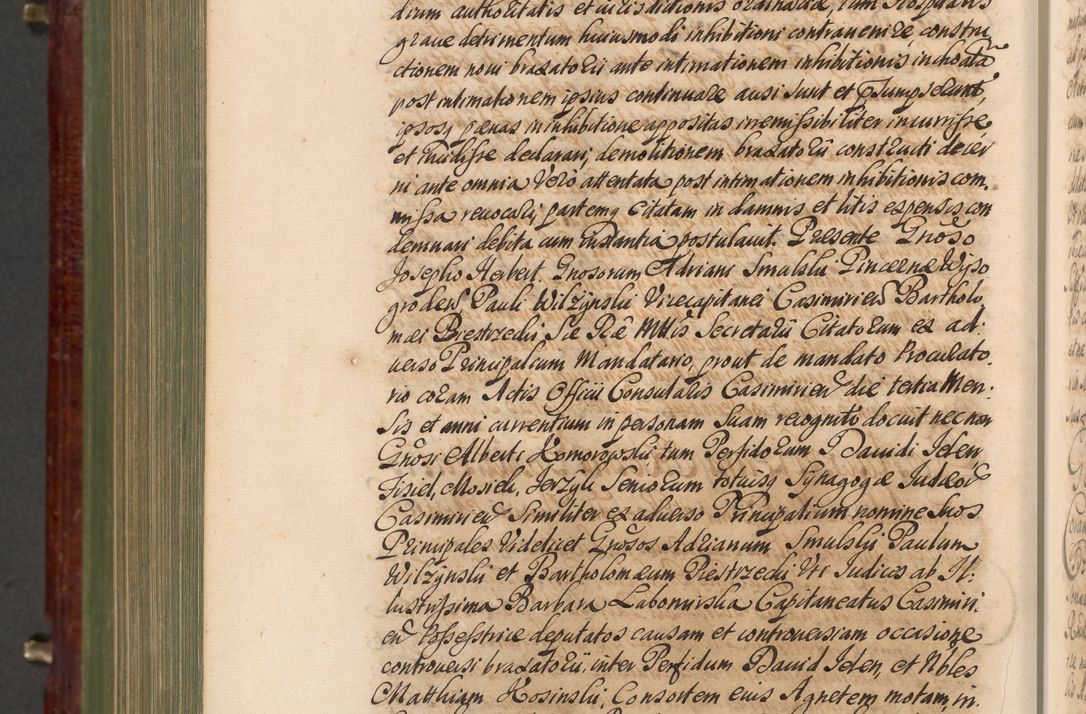 dium authoritatis et iurisdictionis ordinariæ, tum
graue detrimentum huiusmodi inhibitioni contrauenire, constru
ctionem noui braxatorii ante intimationem inhibitionis inchoata
post intimationem ipsius continuare ausi sunt et
ipsosq pænas in inhibitione appositas irremissibiliter incurrisse
et incidisse declarari, demolitionem braxatorii constructi decer
ni ante omnia Vero attentata post intimationem inhibitionis com,
missa reuocari, partemq Citatam in damnis et litis expensis con
demnari debita cum instantia postulauit. Presente Gnoso
Josepho Herbert Gnosorum Adriani Smalski Pincernæ Wyso
groden Pauli Wilzynski Vicecapitanei Casimirien Bartholo
mæi Piestrzecki Sæ Ræ Mttis Secretarii Citatorum ex ad:
uerso Principalium Mandatario, prout de mandato Procurato
rio coram Actis Officii Consularis Casimirien die tertia Men:
sis et anni currentium in personam suam recognito docuit nec non
Gnosi Alberti Komorowski tum Perfidorum Dauidi Jelen,
Fisiel, Mosiek, Jerzyk Seniorum totiusq Synagogæ Judæor
Casimirien Similiter ex aduerso Principalium nomine suos
Principales Videlicet Gnosos Adrianum Smalski Paulum
Wilzynski et Bartholomæum Piestrzecki Uti Judices ab Il:
lustrissima Barbara Labomirska Capitaneatus Casimiri
en Possestrice deputatos causam et controuersiam occasione
controuersi braxatorii, inter Perfidum Dauid Jelen, et Nbles
Matthiam Kosinski, Consortem eius Agnetem motam, in